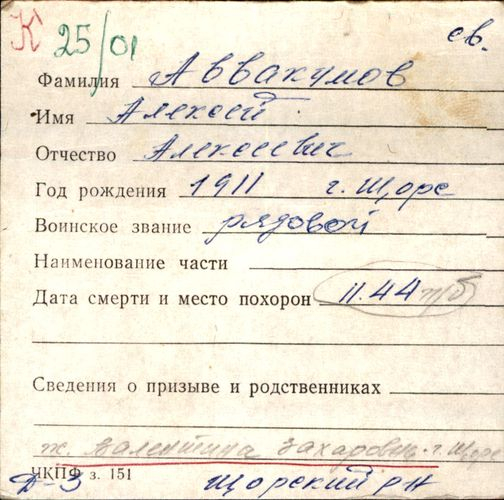 К 25/01 св.
Фамилия Аввакумов
Имя Алексей
Отчество Алексеевич
Год рождения 1911 г. Щорс
Воинское звание рядовой
Наименование части
Дата смерти и место похорон 11.44 п/б
Сведения о призыве и родственниках
ж. Валентина Захаровн. г. Щорс
ЧКПФ з. 151
Д-3 Щорский р-н